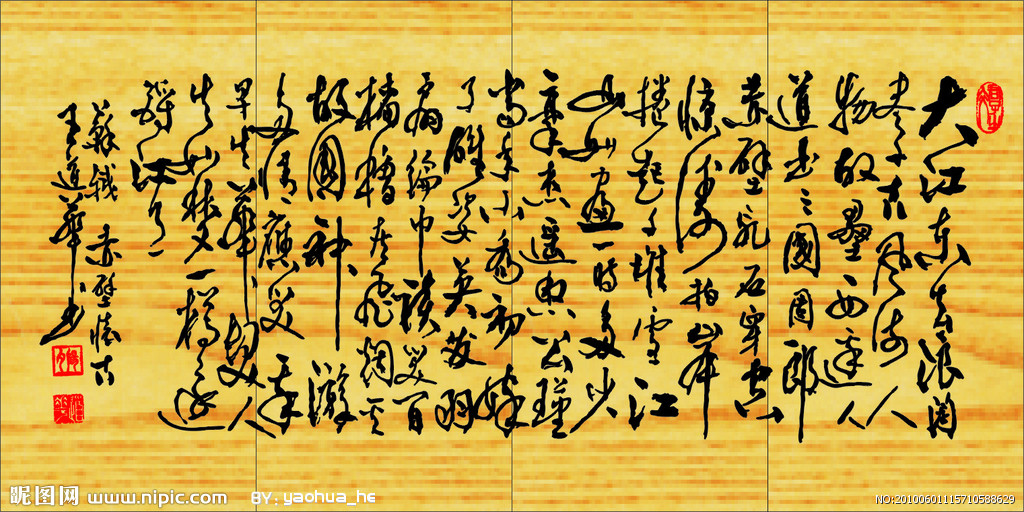 大江东去浪淘
尽千古风流人
物故壘西邊人
道是三國周郎
赤壁乱石穿空
惊涛拍岸
捲起千堆雪江
山如畫一時多少
豪杰遥想公瑾
當年小喬初嫁
了雄姿英发羽
扇綸巾談笑间
樯櫓灰飞烟灭
故國神游
多情應笑我
早生華髮人
生如梦一樽還
酹江月
蘇軾 赤壁懷古
王道華书
昵图网 www.nipic.com BY:yaohua_he
NO:20100601115710588629